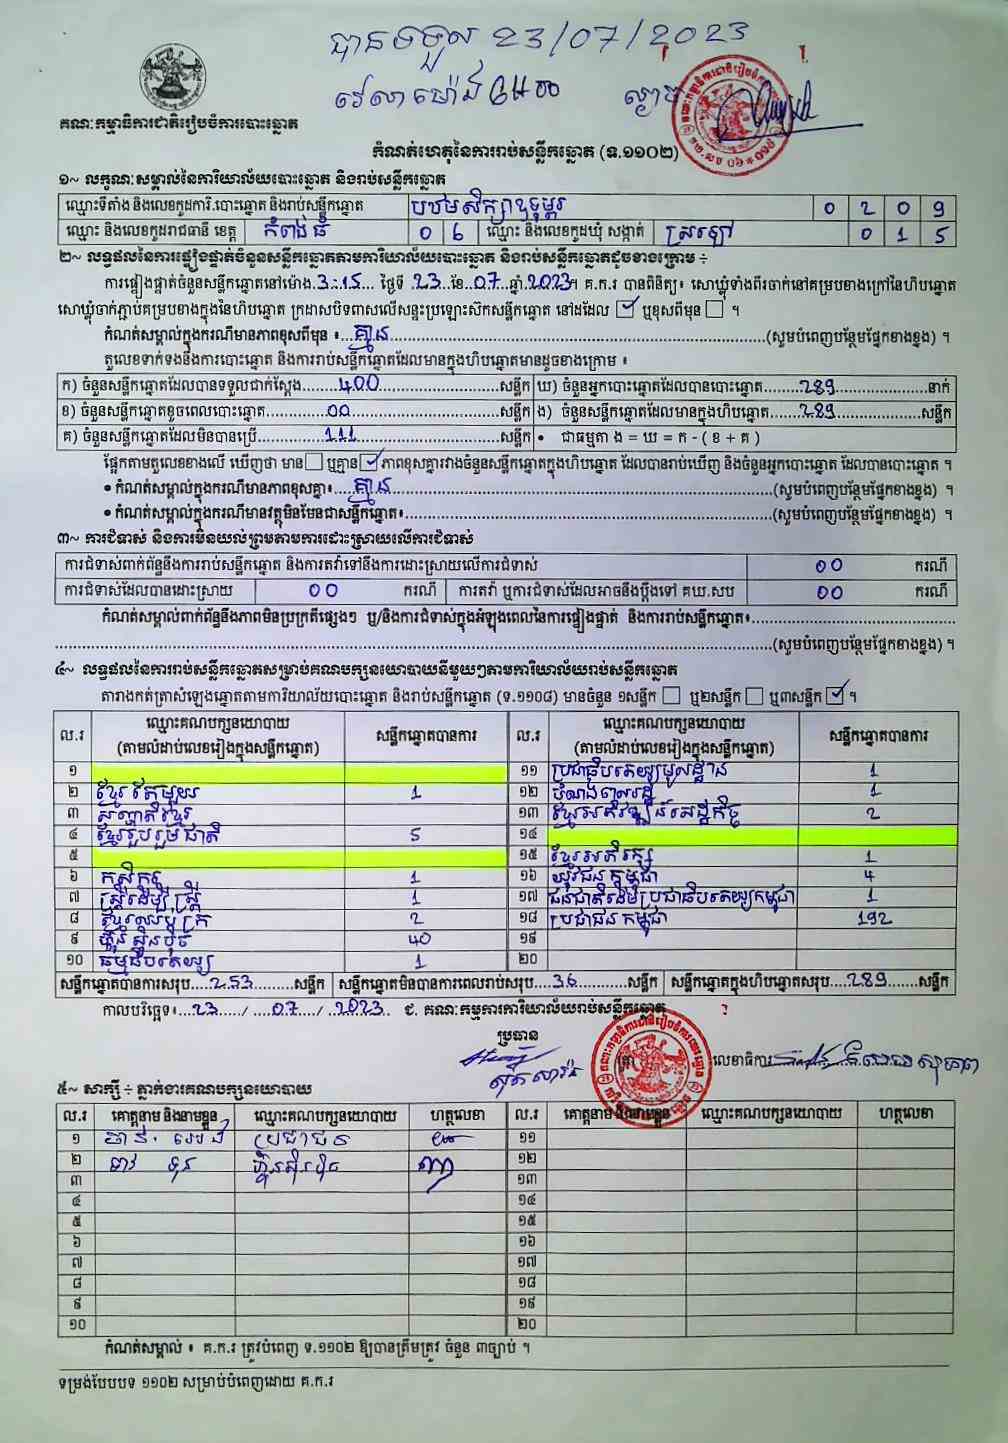 បានទទួល 23/07/2023
វេលាម៉ោង
គណៈកម្មាធិការជាតិរៀបចំការបោះឆ្នោត
កំណត់ហេតុនៃការរាប់សន្លឹកឆ្នោត (ទ.១១០២)
១~ លក្ខណៈសម្គាល់នៃការិយាល័យបោះឆ្នោត និងរាប់សន្លឹកឆ្នោត
ឈ្មោះទីតាំង និងលេខកូដការិ.បោះឆ្នោត និងរាប់សន្លឹកឆ្នោត បឋមសិក្សាឧទុម្ពរ 0 2 0 9
ឈ្មោះ និងលេខកូដរាជធានី ខេត្ត កំពង់ធំ 0 6 ឈ្មោះ និងលេខកូដឃុំ សង្កាត់ ស្រឡៅ 0 1 5
២~ លទ្ធផលនៃការផ្ទៀងផ្ទាត់ចំនួនសន្លឹកឆ្នោតតាមការិយាល័យបោះឆ្នោត និងរាប់សន្លឹកឆ្នោតដូចខាងក្រោម ÷
ការផ្ទៀងផ្ទាត់ចំនួនសន្លឹកឆ្នោតនៅម៉ោង 3:15 ថ្ងៃទី 23 ខែ 07 ឆ្នាំ 2023។ គ.ក.រ បានពិនិត្យ៖ សោឃ្លុំទាំងពីរចាក់នៅគម្របខាងក្រៅនៃហិបឆ្នោត
សោឃ្លុំចាក់ភ្ជាប់គម្របខាងក្នុងនៃហិបឆ្នោត ក្រដាសបិទពាសលើសន្ទះប្រឡោះស៊កសន្លឹកឆ្នោត នៅដដែល ☑ ឬខុសពីមុន ☐ ។
កំណត់សម្គាល់ក្នុងករណីមានភាពខុសពីមុន ៖ គ្មាន (សូមបំពេញបន្ថែមផ្នែកខាងខ្នង) ។
តួលេខទាក់ទងនឹងការបោះឆ្នោត និងការរាប់សន្លឹកឆ្នោតដែលមានក្នុងហិបឆ្នោតមានដូចខាងក្រោម ៖
ក) ចំនួនសន្លឹកឆ្នោតដែលបានទទួលជាក់ស្តែង 400 សន្លឹក ឃ) ចំនួនអ្នកបោះឆ្នោតដែលបានបោះឆ្នោត 289 នាក់
ខ) ចំនួនសន្លឹកឆ្នោតខូចពេលបោះឆ្នោត 00 សន្លឹក ង) ចំនួនសន្លឹកឆ្នោតដែលមានក្នុងហិបឆ្នោត 289 សន្លឹក
គ) ចំនួនសន្លឹកឆ្នោតដែលមិនបានប្រើ 111 សន្លឹក • ជាធម្មតា ង = ឃ = ក - ( ខ + គ )
ផ្អែកតាមតួលេខខាងលើ ឃើញថា មាន ☐ ឬគ្មាន ☑ ភាពខុសគ្នារវាងចំនួនសន្លឹកឆ្នោតក្នុងហិបឆ្នោត ដែលបានរាប់ឃើញ និងចំនួនអ្នកបោះឆ្នោត ដែលបានបោះឆ្នោត ។
• កំណត់សម្គាល់ក្នុងករណីមានភាពខុសគ្នា៖ គ្មាន (សូមបំពេញបន្ថែមផ្នែកខាងខ្នង) ។
• កំណត់សម្គាល់ក្នុងករណីមានវត្ថុមិនមែនជាសន្លឹកឆ្នោត៖ (សូមបំពេញបន្ថែមផ្នែកខាងខ្នង) ។
៣~ ការជំទាស់ និងការមិនយល់ព្រមតាមការដោះស្រាយលើការជំទាស់
ការជំទាស់ពាក់ព័ន្ធនឹងការរាប់សន្លឹកឆ្នោត និងការតវ៉ាទៅនឹងការដោះស្រាយលើការជំទាស់ 00 ករណី
ការជំទាស់ដែលបានដោះស្រាយ 00 ករណី ការតវ៉ា ឬការជំទាស់ដែលអាចនឹងប្តឹងទៅ គឃ.សប 00 ករណី
កំណត់សម្គាល់ពាក់ព័ន្ធនឹងភាពមិនប្រក្រតីផ្សេងៗ ឬ/និងការជំទាស់ក្នុងអំឡុងពេលនៃការផ្ទៀងផ្ទាត់ និងការរាប់សន្លឹកឆ្នោត៖
(សូមបំពេញបន្ថែមផ្នែកខាងខ្នង) ។
៤~ លទ្ធផលនៃការរាប់សន្លឹកឆ្នោតសម្រាប់គណបក្សនយោបាយនីមួយៗតាមការិយាល័យរាប់សន្លឹកឆ្នោត
តារាងកត់ត្រាសំឡេងឆ្នោតតាមការិយាល័យបោះឆ្នោត និងរាប់សន្លឹកឆ្នោត (ទ.១១០៨) មានចំនួន ១សន្លឹក ☐ ឬ២សន្លឹក ☐ ឬ៣សន្លឹក ☑ ។
ល.រ ឈ្មោះគណបក្សនយោបាយ (តាមលំដាប់លេខរៀងក្នុងសន្លឹកឆ្នោត) សន្លឹកឆ្នោតបានការ ល.រ ឈ្មោះគណបក្សនយោបាយ (តាមលំដាប់លេខរៀងក្នុងសន្លឹកឆ្នោត) សន្លឹកឆ្នោតបានការ
១ ១១ ប្រជាធិបតេយ្យមូលដ្ឋាន 1
២ ខ្មែរតែមួយ 1 ១២ បំណងពលរដ្ឋ 1
៣ សញ្ជាតិខ្មែរ ១៣ ខ្មែរអភិវឌ្ឍន៍សេដ្ឋកិច្ច 2
៤ ខ្មែររួបរួមជាតិ 5 ១៤
៥ ១៥ ខ្មែរអភិរក្ស 1
៦ កសិករ 1 ១៦ យុវជនកម្ពុជា 4
៧ ស្រ្តីដើម្បីស្រ្តី 1 ១៧ ជនជាតិដើមប្រជាធិបតេយ្យកម្ពុជា 1
៨ ខ្មែរឈប់ក្រ 2 ១៨ ប្រជាជនកម្ពុជា 192
៩ ហ៊្វុនស៊ិនប៉ិច 40 ១៩
១០ ធម្មាធិបតេយ្យ 1 ២០
សន្លឹកឆ្នោតបានការសរុប 253 សន្លឹក សន្លឹកឆ្នោតមិនបានការពេលរាប់សរុប 36 សន្លឹក សន្លឹកឆ្នោតក្នុងហិបឆ្នោតសរុប 289 សន្លឹក
កាលបរិច្ឆេទ៖ 23 / 07 / 2023. ជ. គណៈកម្មការការិយាល័យរាប់សន្លឹកឆ្នោត
ប្រធាន
លេខាធិការ
៥~ សាក្សី ÷ ភ្នាក់ងារគណបក្សនយោបាយ
ល.រ គោត្តនាម និងនាមខ្លួន ឈ្មោះគណបក្សនយោបាយ ហត្ថលេខា ល.រ គោត្តនាម និងនាមខ្លួន ឈ្មោះគណបក្សនយោបាយ ហត្ថលេខា
១ ប្រជាជន ១១
២ ហ៊្វុនស៊ិនប៉ិច ១២
៣ ១៣
៤ ១៤
៥ ១៥
៦ ១៦
៧ ១៧
៨ ១៨
៩ ១៩
១០ ២០
កំណត់សម្គាល់ ៖ គ.ក.រ ត្រូវបំពេញ ទ.១១០២ ឱ្យបានត្រឹមត្រូវ ចំនួន ៣ច្បាប់ ។
ទម្រង់បែបបទ ១១០២ សម្រាប់បំពេញដោយ គ.ក.រ